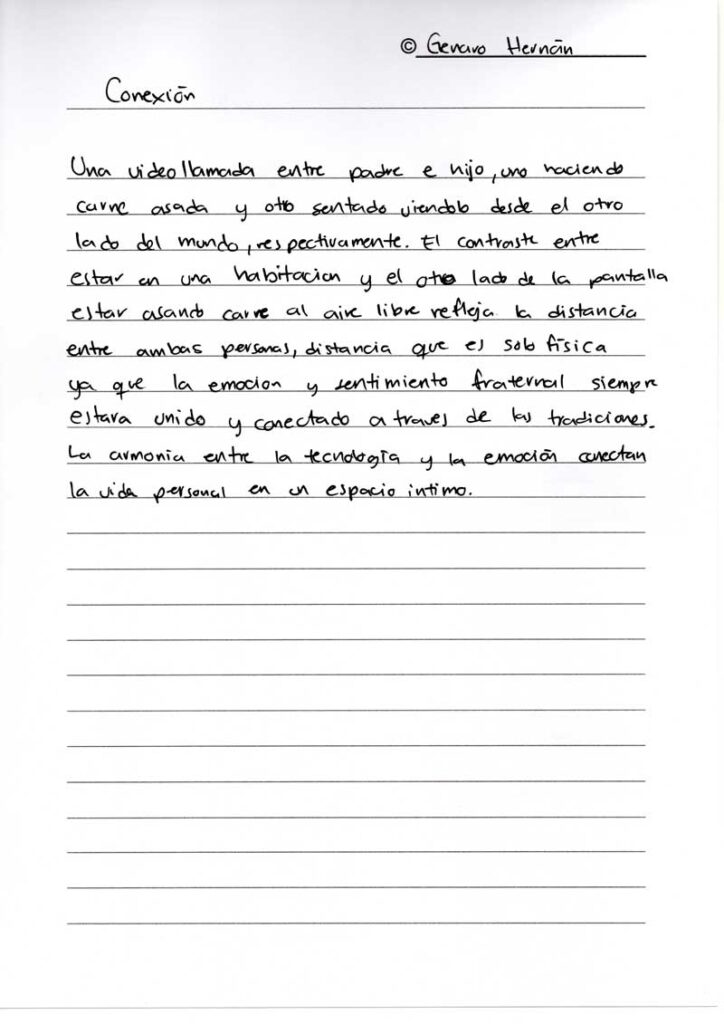 © Genaro Hernán
Conexión
Una videollamada entre padre e hijo, uno haciendo
carne asada y otro sentado viendolo desde el otro
lado del mundo, respectivamente. El contraste entre
estar en una habitacion y el otro lado de la pantalla
estar asando carne al aire libre refleja la distancia
entre ambas personas, distancia que es solo física
ya que la emocion y sentimiento fraternal siempre
estara unido y conectado a traves de las tradiciones.
La armonia entre la tecnología y la emoción conectan
la vida personal en un espacio intimo.